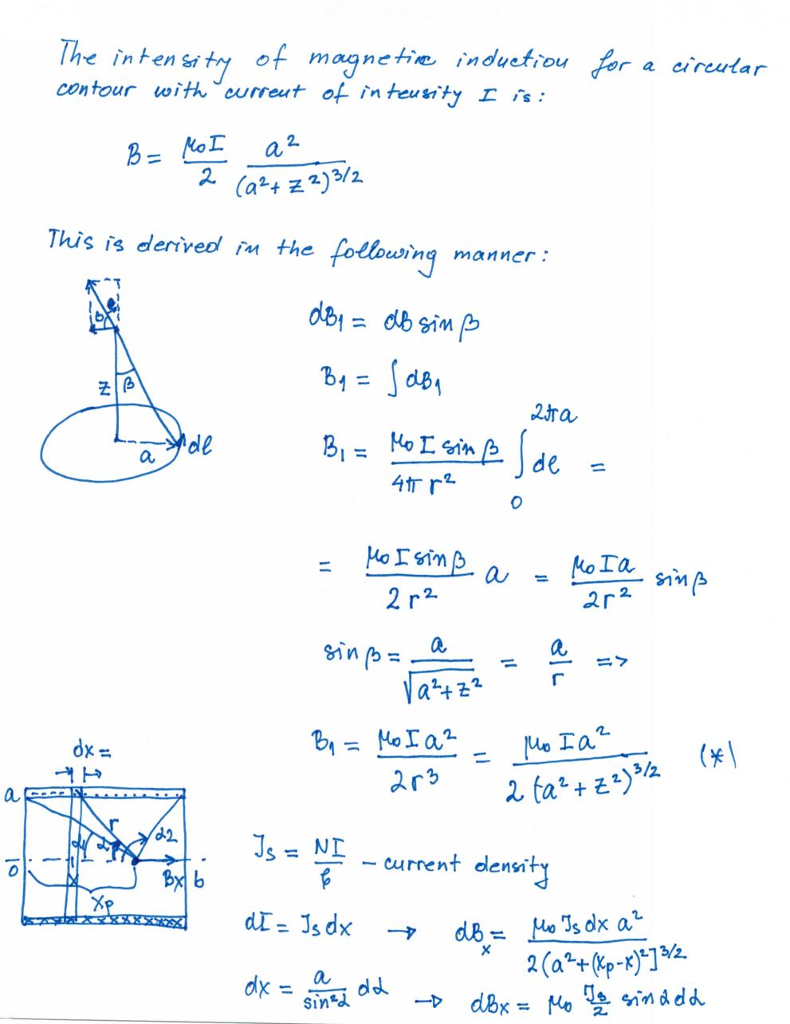 The intensity of magnetic induction for a circular
contour with current of intensity I is:
B = μ₀I/2 a²/(a² + z²)^3/2
This is derived in the following manner:
dB₁ = dB sin β
B₁ = ∫ dB₁
z β
a dl
B₁ = μ₀ I sin β / 4π r² ∫₀^2πa dl =
= μ₀ I sin β / 2r² a = μ₀ I a / 2r² sin β
sin β = a/√(a² + z²) = a/r =>
B₁ = μ₀ I a² / 2r³ = μ₀ I a² / 2 (a² + z²)^3/2 (*)
dx =
a
r
α2
0 x Bx b
xp
Js = NI/b - current density
dI = Js dx → dBx = μ₀ Js dx a² / 2(a² + (xp - x)²]^3/2
dx = a/sin²α dα → dBx = μ₀ Js/2 sin α dα